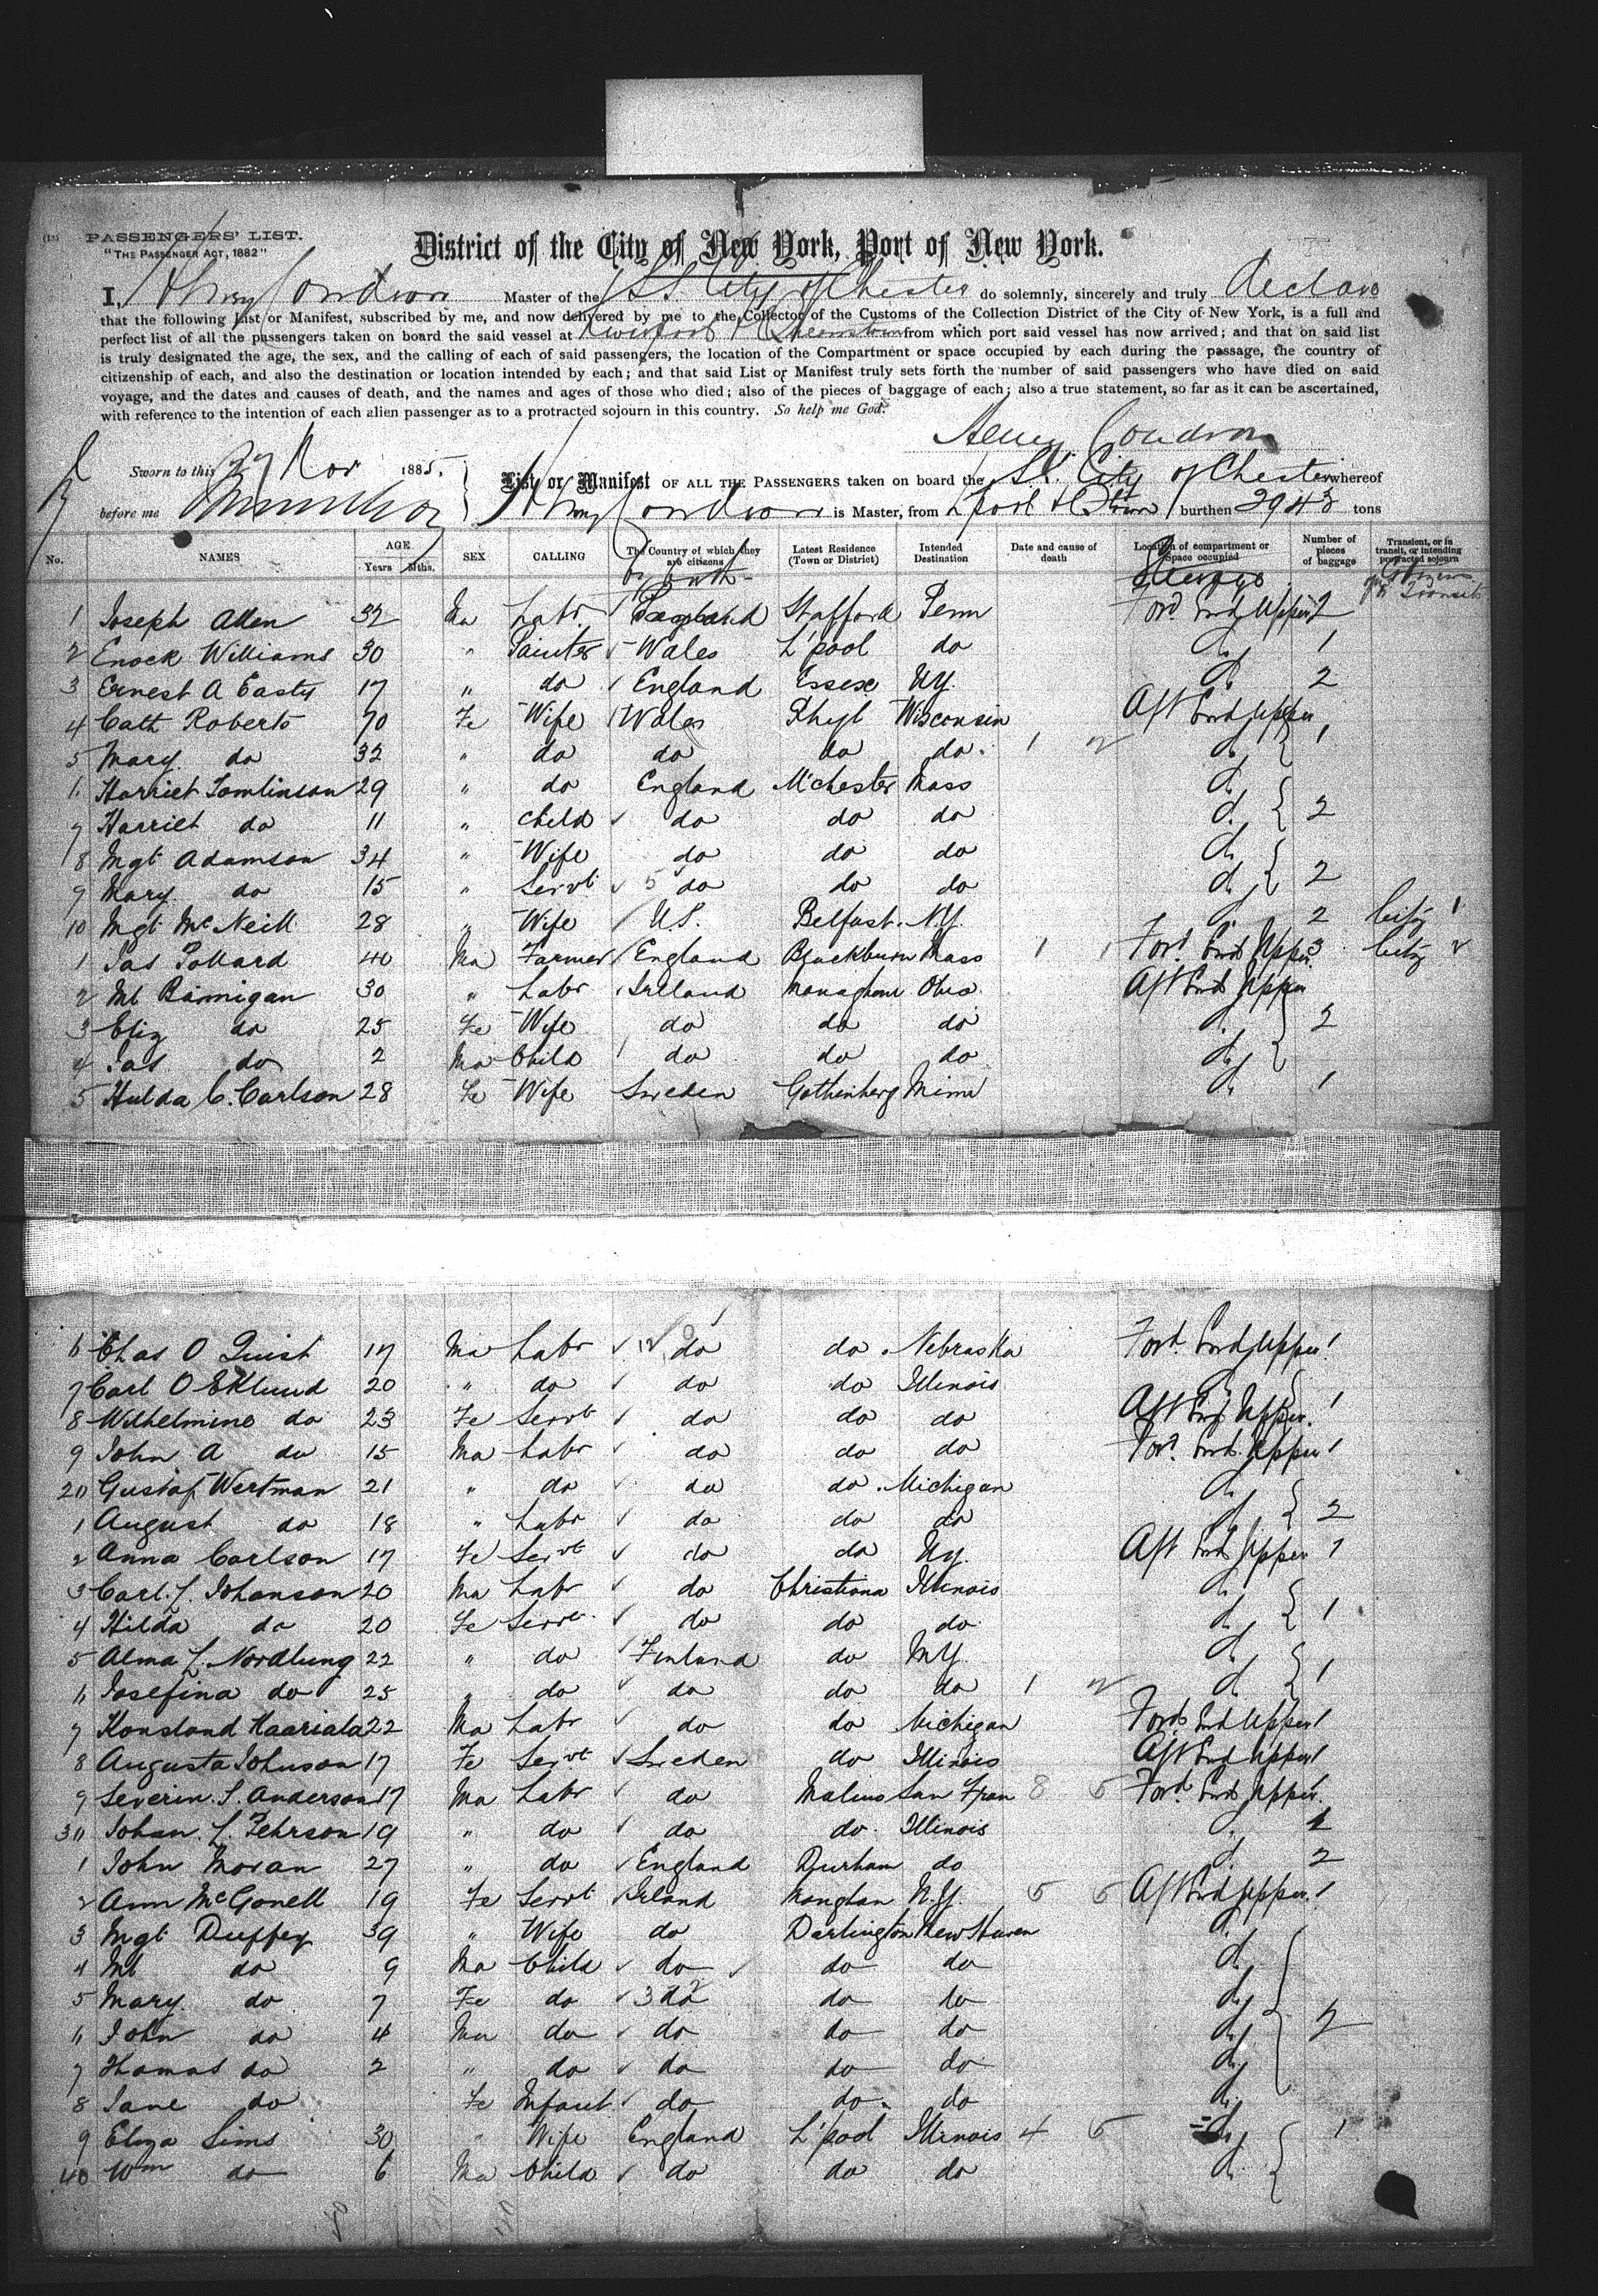 (15) PASSENGERS' LIST.
"THE PASSENGER ACT, 1882"
District of the City of New York, Port of New York.
I, Henry Condron Master of the SS. City of Chester do solemnly, sincerely and truly declare
that the following List or Manifest, subscribed by me, and now delivered by me to the Collector of the Customs of the Collection District of the City of New York, is a full and
perfect list of all the passengers taken on board the said vessel at Liverpool & Queenstown from which port said vessel has now arrived; and that on said list
is truly designated the age, the sex, and the calling of each of said passengers, the location of the Compartment or space occupied by each during the passage, the country of
citizenship of each, and also the destination or location intended by each; and that said List or Manifest truly sets forth the number of said passengers who have died on said
voyage, and the dates and causes of death, and the names and ages of those who died; also of the pieces of baggage of each; also a true statement, so far as it can be ascertained,
with reference to the intention of each alien passenger as to a protracted sojourn in this country. So help me God.
Henry Condron
Sworn to this 27 Nov 1885.
List or Manifest OF ALL THE PASSENGERS taken on board the SS. City of Chester whereof
before me Henry Condron is Master, from L'pool & Qtown burthen 2943 tons
No. NAMES AGE Years Mths. SEX CALLING The Country of which they are citizens Latest Residence (Town or District) Intended Destination Date and cause of death Location of compartment or Space occupied Number of pieces of baggage Transient, or in transit, or intending protracted sojourn
or birth Steerage
1 Joseph Allen 32 Ma Labr England Stafford Penn Ford. End Upper 2
2 Enock Williams 30 " Painter Wales L'pool do do 1
3 Ernest A Easty 17 " do England Essex NY. do 2
4 Cath Roberts 70 Fe Wife Wales Rhyl Wisconsin Aft End Upper
5 Mary do 32 " do do do do 1 do 1
6 Harriet Tomlinson 29 " do England M'chester Mass do
7 Harriet do 11 " Child do do do do 2
8 Mgt Adamson 34 " Wife do do do do
9 Mary do 15 " Servt 5 do do do do 2
10 Mgt McNeill 28 " Wife US. Belfast NY. do 2 Citz 1
1 Jas Pollard 40 Ma Farmer England Blackburn Mass 1 1 Ford. End Upper 3 Citz 2
2 Ml Bannigan 30 " Labr Ireland Monaghan Ohio Aft End Upper
3 Eliz do 25 Fe Wife do do do do 2
4 Jas do 2 Ma Child do do do do
5 Hulda C. Carlson 28 Fe Wife Sweden Gothenberg Minn do 1
6 Chas O Quist 17 Ma Labr do do Nebraska Ford. End Upper 1
7 Carl O Eklund 20 " do do do Illinois do
8 Wilhelmine do 23 Fe Servt do do do Aft End Upper. 1
9 John A do 15 Ma Labr do do do Ford. End Upper 1
20 Gustaf Wertman 21 " do do do Michigan do
1 August do 18 " Labr do do do do 2
2 Anna Carlson 17 Fe Servt do do NY. Aft End Upper 1
3 Carl L. Johanson 20 Ma Labr do Christiana Illinois do
4 Hilda do 20 Fe Servt do do do do 1
5 Alma L Nordlung 22 " do Finland do NY. do
6 Josefina do 25 " do do do do 1 do 1
7 Konsland Haariala 22 Ma Labr do do Michigan Ford. End Upper 1
8 Augusta Johnson 17 Fe Servt Sweden do Illinois Aft End Upper 1
9 Severin S. Anderson 17 Ma Labr do Malmo San Fran 8 5 Ford. End Upper 1
30 Johan L. Fehrson 19 " do do do Illinois do 1
1 John Moran 27 " do England Durham do do 2
2 Ann McGonell 19 Fe Servt Irland Monghan N.Y. 5 5 Aft End Upper. 1
3 Mgt Duffey 39 " Wife do Darlington New Haven do
4 Ml do 9 Ma Child do do do do
5 Mary do 7 Fe do 32 do do do do
6 John do 4 Ma do do do do do 2
7 Thomas do 2 " do do do do do
8 Jane do Fe Infant do do do do
9 Eliza Sims 30 " Wife England L'pool Illinois 4 5 do 1
40 Wm do 6 Ma Child do do do do